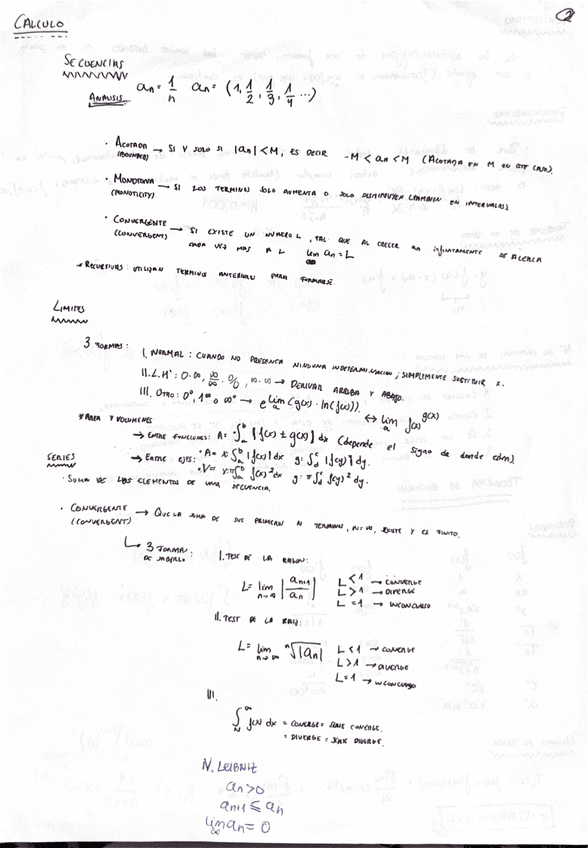 2
CALCULO
SECUENCIAS
ANALISIS an = 1/n an = (1, 1/2, 1/3, 1/4 ...)
· ACOTADA → SI Y SOLO SI |an| < M, ES DECIR -M < an < M (ACOTADA EN M EN ESTE CASO).
(BOUNDED)
· MONOTONA → SI LOS TERMINOS SOLO AUMENTA O SOLO DISMINUYEN (TAMBIEN EN INTERVALOS)
(MONOTICITY)
· CONVERGENTE → SI EXISTE UN NUMERO L, TAL QUE AL CRECER an INFINITAMENTE SE ACERCA
(CONVERGENT) CADA VEZ MAS A L lim an = L
* RECURSIVAS: UTILIZAN TERMINO ANTERIOR PARA FORMARSE
LIMITES
3 FORMAS:
I. NORMAL: CUANDO NO PRESENTA NINGUNA INDETERMINACION, SIMPLEMENTE SUBTITUIR X.
II. L.H': 0·∞, ∞/∞, 0/0, ∞-∞ → DERIVAR ARRIBA Y ABAJO.
III. OTRO: 0⁰, 1^∞ o ∞⁰ → e^lim a (g(x) · ln(f(x))). ↔ lim a f(x)^g(x)
* AREA Y VOLUMENES
→ ENTRE FUNCIONES: A = ∫a^b |f(x) ± g(x)| dx (depende el signo de donde esten)
SERIES → ENTRE EJES: · A = x: ∫a^b |f(x)| dx y: ∫c^d |f(y)| dy.
· V = x: π∫a^b f(x)² dx y: π∫c^d f(y)² dy.
· SUMA DE LOS ELEMENTOS DE UNA SECUENCIA.
· CONVERGENTE → QUE LA SUMA DE SUS PRIMEROS N TERMINOS, N=∞, EXISTE Y ES FINITO.
(CONVERGENT)
↳ 3 FORMAS DE SABERLO:
I. TEST DE LA RAZON:
L = lim n→∞ |an+1/an| L < 1 → CONVERGE
L > 1 → DIVERGE
L = 1 → INCONCLUSO
II. TEST DE LA RAIZ:
L = lim n→∞ ⁿ√|an| L < 1 → CONVERGE
L > 1 → DIVERGE
L = 1 → INCONCLUSO
III.
∫N^∞ f(x) dx = CONVERGE = SERIE CONVERGE.
= DIVERGE = SERIE DIVERGE.
IV. LEIBNIZ
an > 0
an+1 ≤ an
lim ∞ an = 0